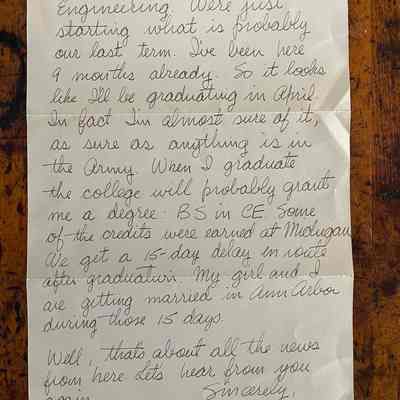 Engineering. We're just
starting what is probably
our last term. I've been here
9 months already. So it looks
like I'll be graduating in April.
In fact I'm almost sure of it,
as sure as anything is in
the Army. When I graduate
the college will probably grant
me a degree: BS in CE. Some
of the credits were earned at Michigan
We get a 15-day delay en route
after graduation. My girl and I
are getting married in Ann Arbor
during those 15 days.
Well, that's about all the news
from here. Let's hear from you
again
Sincerely,